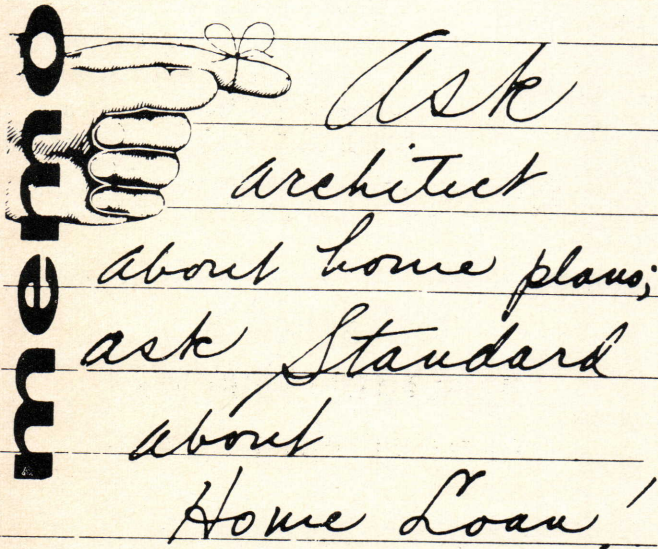 memo
Ask
architect
about home plans;
ask Standard
about
Home Loan!